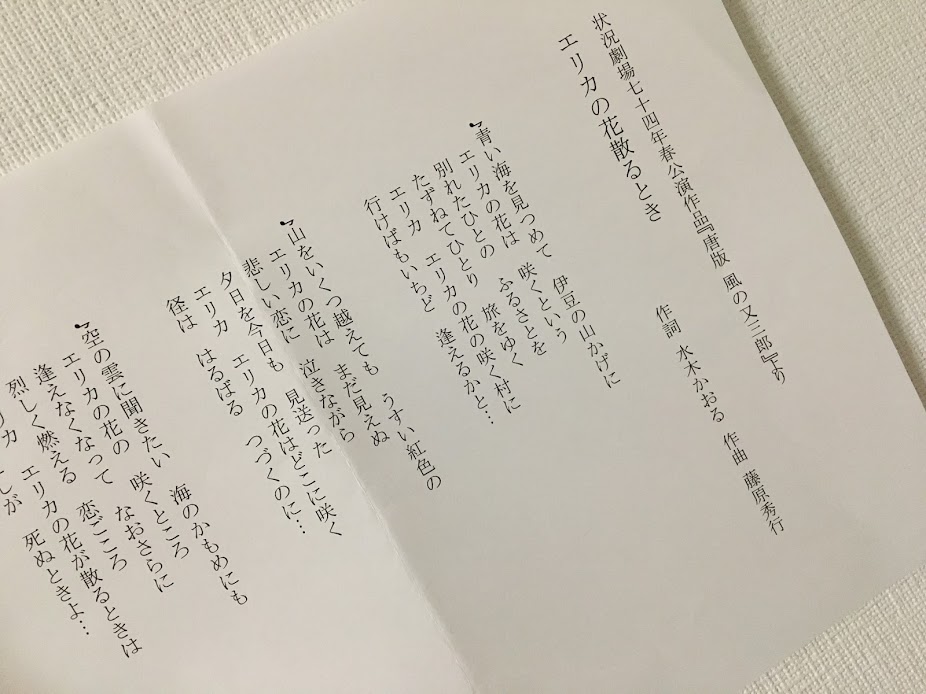 状況劇場七十四年春公演作品『唐版 風の又三郎』より
エリカの花散るとき
作詞 水木かおる 作曲 藤原秀行
青い海を見つめて 伊豆の山かげに
エリカの花は 咲くという
別れたひとの ふるさとを
たずねてひとり 旅をゆく
エリカ エリカの花の咲く村に
行けばもいちど 逢えるかと…
山をいくつ越えても うすい紅色の
エリカの花は まだ見えぬ
悲しい恋に 泣きながら
夕日を今日も 見送った
エリカ エリカの花はどこに咲く
径は はるばる つづくのに…
空の雲に聞きたい 海のかもめにも
エリカの花の 咲くところ
逢えなくなって なおさらに
烈しく燃える 恋ごころ
エリカの花が散るときは
死ぬときよ…